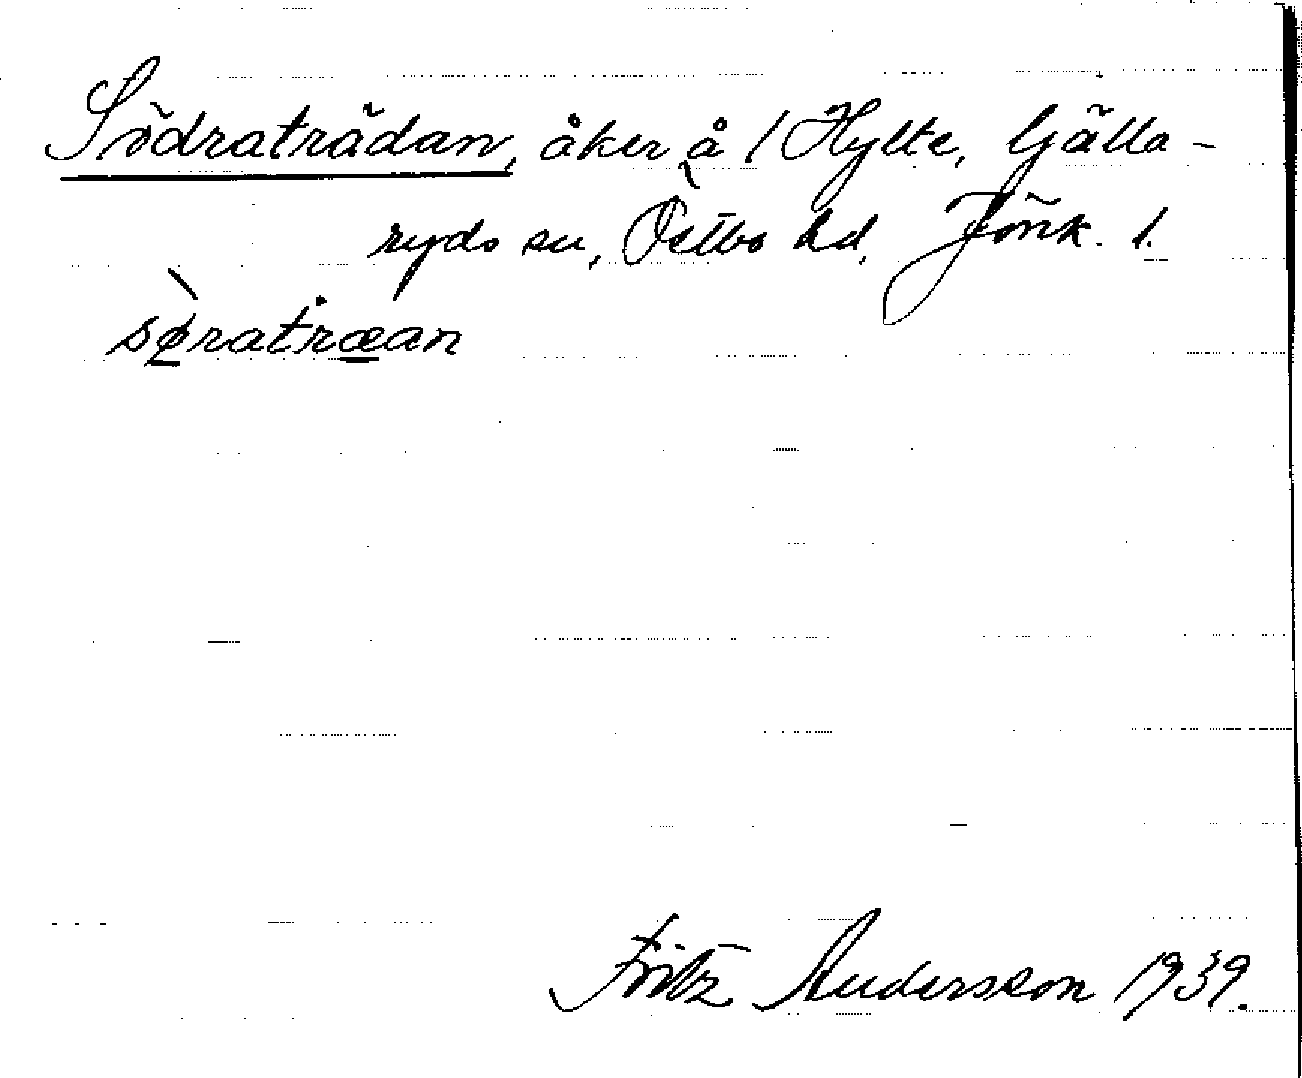 Södraträdan, åker å 1 Hylte, Gjälla-
ryds sn, Östbo hd, Jönk. l.
søratræan
Fritz Andersson 1939.